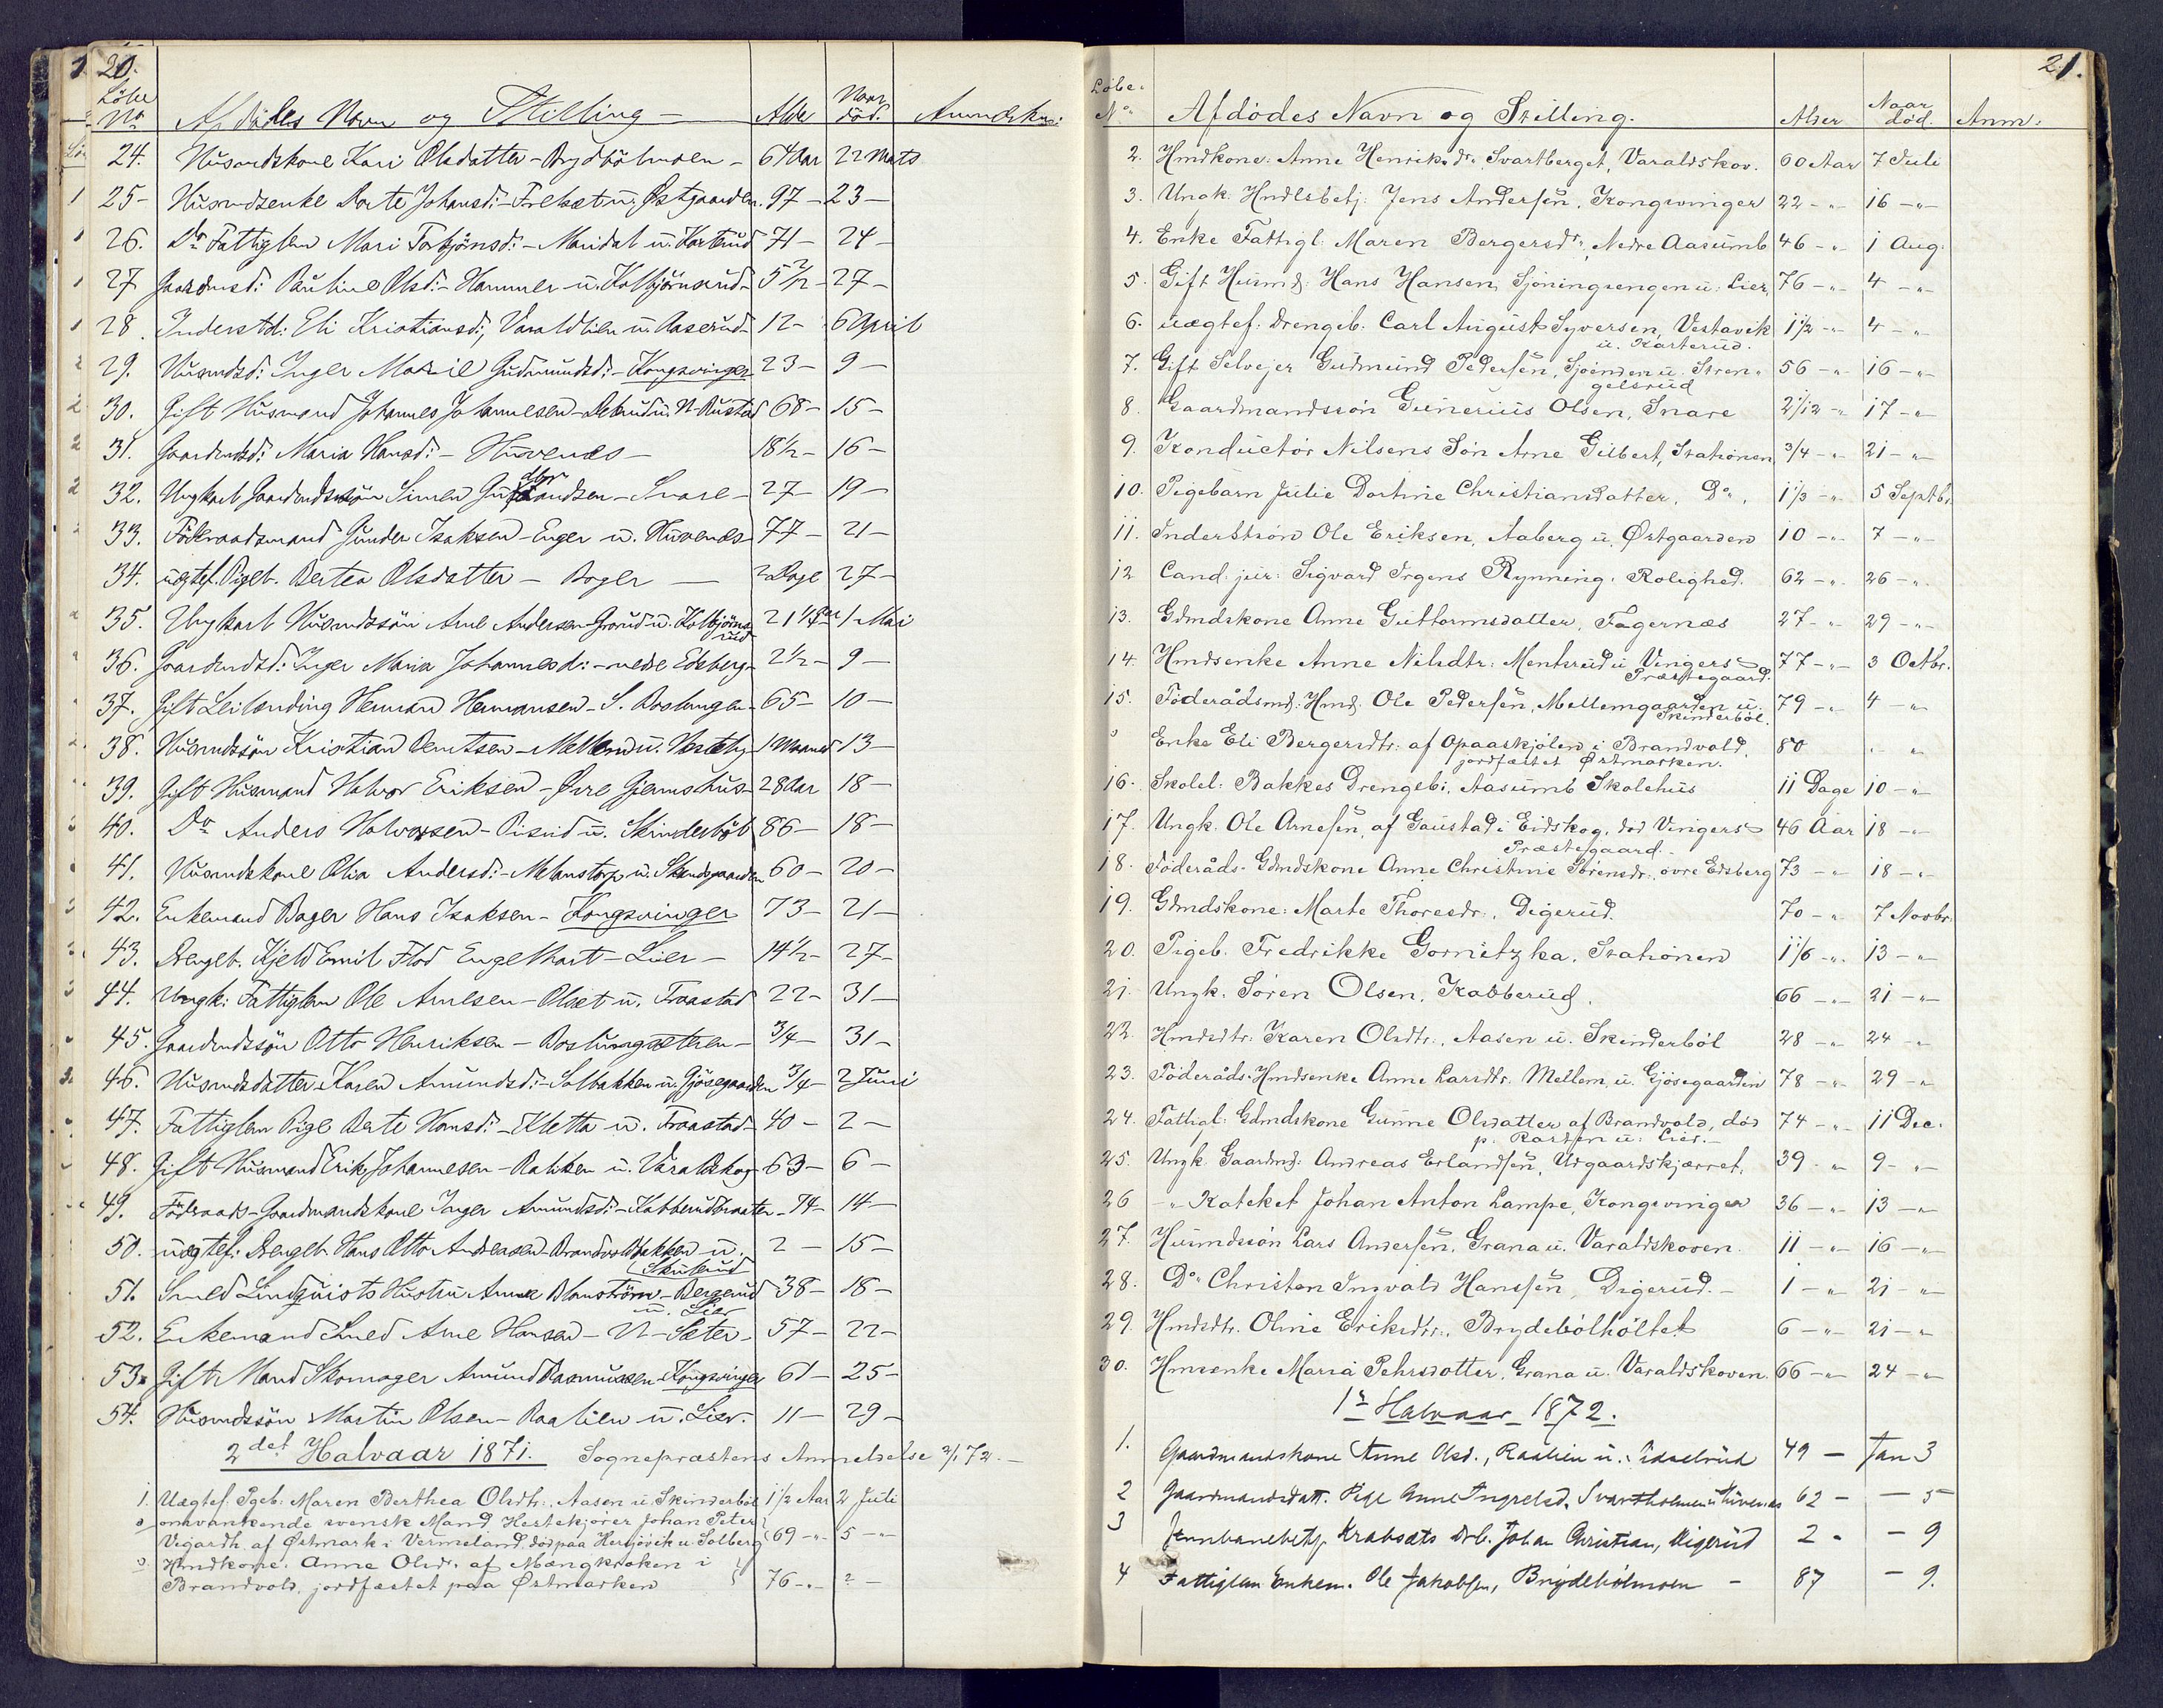 20.
Löbe No Afdödes Navn og Stilling Alder Naar död.
24. Husmandskone Kari Olsdatter - Brydbölmoen - 64 Aar 22 Mats
25 - Husmdsenke Dorte Johansd: - u. Östgaarden. 97 - 23 -
26. Do Fattiglem Mari Torbjönsd: - Maridal u. Karterud 71 - 24 -
27 Gaardmsd: Pauline Olsd: - Hammer u. Kolbjörnsrud - 27 -
28. Inderstd: Eli Kristiansd:, Varaldlien u. Aaserud - 12 - 6 April
29. Husmdsd: Inger Marie Gudmundsd: - Kongsvinger 23 - 9 -
30. Gift Husmand Johannes Johannesen - u. N-Rustad 68 - 15 -
31. Gaardmdsd: Maria Hansd: - Huvenæs - 18½ - 16 -
32. Ungkarl Gaardmdssön Simen - Snare - 27 - 19 -
33. Föderaadsmand Gunder Isaksen - Enger u. Huvenæs 77 - 21 -
34. uægtef. Pigeb. Bertea Olsdatter - Boger - 2 Dage 27 -
35. Ungkarl Husmdssön Arne Andersen - Grorud u. Kolbjörns
rud 1 Mai
36. Gaardmdsd: Inger Maria Johannesd: - nedre Edsberg - 2½ - 9 -
37. Gift Leilending Herman Hermansen - S. Roslungen - 65 - 10 -
38. Husmdssön Kristian Berntsen - Mellem u. Vesteby - 1 Maaned 13 -
39. Gift Husmand Halvor Eriksen - Övre Gjermshus - 28 Aar 18 -
40. Do Anders Halvorsen - Pisrud u. Skinderböl 86 - 18 -
41. Husmndskone Olia Andersd: - Melanstorp u. Skandsgaarden 60 - 20 -
42. Enkemand Bager Hans Isaksen - Kongsvinger 73 - 21 -
43. Drengeb. Kjeld Emil Flod Engelhart - Lier - 14½ - 27 -
44. Ungk: Fattiglem Ole Arnesen - Olset u. Traastad 22 - 31 -
45. Gaardmdssön Otto Henriksen - Roslungsæteren - 3/4 - 31 -
46. Husmdsdatter Karen Amundsd: - Solbakken u. Gjösegaarden 3/4 - 2 Juni
47. Fattiglem Pige Berte Hansd: - Kletta u. Traastad - 40 - 2 -
48. Gift Husmand Erik Johannesen - Rakiken u. Varaldskog - 63 - 6 -
49. Föderaads-Gaardmandskone Inger Amundsd: - Kabberudbraaten - 74 - 14 -
50. uægtef: Drengeb. Hans Otto Andreasen - Brandvoldbakken u. 2 - 15 -
Skulerud
51. Smed Lindquists Hustru Anna Blomström - Bergerud 38 - 18 -
u. Lier
52. Enkemand Smed Arne Hansen - N-Sæter - 57 - 22 -
53. Gift Mand Skomager Amund Rasmussen - Kongsvinger 61 - 25 -
54. Husmdssön Martin Olsen - Raalien u. Lier. 11 - 29 -
2det Halvaar 1871. Sognepræstens Anmeldelse 2/1 72. -
1. Uægtef. Pgeb. Maren Berthea Olsdtr., Aasen u. Skinderböl 1½ Aar 2 Juli
omvankende svensk Mand Hestekjörer Johan Peter
Vigardh af Östmark i Vermeland, död paa Hersjövik u. Solberg 69 - " - 5 - " -
Hmdkone. Anne Olsdr. af Mængkroken i
Brandvold, jordfæstet paa Östmarken 76 - " - ? -
21.
Löbe-
No Afdödes Navn og Stilling. Alder Naar död. Anm.
2. Hmdkone: Anne Henriksdr., Svartberget, Varaldskov. 60 Aar 7 Juli
3. Ungk. Hndlsbetj: Jens Andersen, Kongsvinger 22 - " - 16 - " -
4. Enke Fattigl: Maren Bergersdr., Nedre Aasumb 46 - " - 1 Aug.
5. Gift Husmd: Hans Hansen, Sjöningsengen u: Lier, 76 - " - 4 - " -
6. uægtef: Drengeb. Carl August Syversen, Vestavik 1½ - " - 4 - " -
u. Karterud.
7. Gift Selvejer Gudmund Pedersen, Sjöenden u. Stren- 56 - " - 16 - " -
gelsrud
8. Gaardmandssön Gunerius Olsen, Snare 2 1/12 - " 17 - " -
9. Konductör Nilsens Sön Arne Gilbert, Stationen 3/4 - " - 21 - " -
10. Pigebarn Julie Dortine Christiansdatter, Do., 1 1/3 - " - 5 Septbr.
11. Inderstsön Ole Eriksen, Aaberg u. Östgaarden 10 - " - 7 - " -
12 Cand: jur: Sigvard Irgens Rynning, Rolighed. 62 - " - 26 - " -
13. Gdmdskone Anne Guttormsdatter, Fagernæs 27 - " - 29 - " -
14. Hmdsenke Anne Nilsdtr: Mentsrud u Vingers 77 - " - 3 Octbr.
Præstegaard.
15. Föderådsmd: Hmd: Ole Pedersen, Mellemgaarden u. 79 - " - 4 - " -
Skinderböl.
Enke Eli Bergersdtr: af Opaaskjölen i Brandvold, 80 " "
jordfæstet Östmarken.
16. Skolel: Bakkes Drengeb:, Aasumb Skolehus 11 Dage 10 - " -
17. Ungk. Ole Arnesen, af Gaustad i Eidskog, död Vingers 46 Aar 18 - " -
Præstegaard. -
18. Föderåds-Gdmdskone Anne Christine Sörensdr. övre Edsberg 73 - " - 18 - " -
19. Gdmdskone: Marte Thoresdr., Digerud. 70 - " 7 Novbr.
20. Pigeb. Fredrikke Gornitzka, Stationen 1 1/6 - " - 13 - " -
21. Ungk. Sören Olsen, Kabberud. 66 - " - 21 - " -
22. Hmdsdtr: Karen Olsdtr:, Aasen u. Skinderböl 28 - " - 24 - " -
23. Föderåds-Hmdsenke Anne Larsdtr. Mellem, u. Gjösegaarden 78 - " - 29 - " -
24. Fattigl: Gdmdskone Gunne Olsdatter af Brandvold, död 74 - " - 11 Dec.
p. u: Lier. -
25. Ungk. Gaardmd: Andreas Erlandsen, Utgaardskjærret, 39 - " - 9 - " -
26 - " Kateket Johan Anton Lampe, Kongsvinger 36 - " - 13 - " -
27. Husmdssön Lars Andersen, Grana u. Varaldskoven 11 - " - 16 - " -
28. Do. Christen Ingvald Hanssen, Digerud. - 1 - " - 21 - " -
29. Hmdsdtr. Oline Eriksdtr:, Brydebölhöltet 6 - " - 21 - " -
30. Hmsenke Maria Pehrsdotter, Grana u. Varaldskoven. 66 - " - 24 - " -
1ste Halvaar 1872.
1. Gaardmandskone Anne Olsd., Raalien u. 49 - Jan 3
2 Gaardmandsdatt. Pige Anne Ingrelsd. Svartholmen u Huvenæs 62 - - 5
3 Jernbanebetj. Krabsæts Drb. Johan Christian, Digerud 2 - - 9
4 Fattiglem Enkem. Ole Jakobsen, Brydebölmoen - 87 - 9.